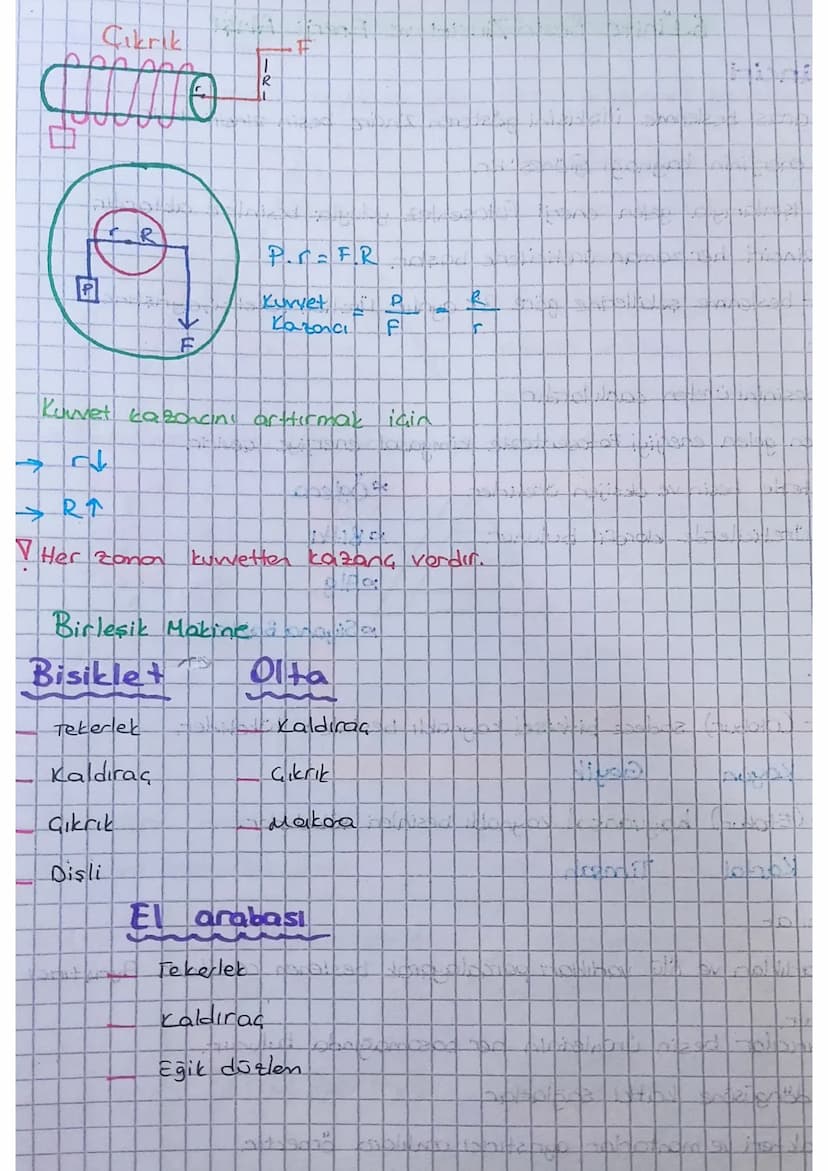 Çıkrık
F
R
r
r R
P
F
P.r = F.R
Kuvvet Kazancı = P/F = R/r
Kuvvet kazancını arttırmak için
→ r↓
→ R↑
! Her zaman kuvvetten kazanç vardır.
Birleşik Makine
Bisiklet
Olta
– Tekerlek
– Kaldıraç
– Kaldıraç
– Çıkrık
– Çıkrık
– Makara
– Dişli
El arabası
– Tekerlek
– Kaldıraç
– Eğik düzlem